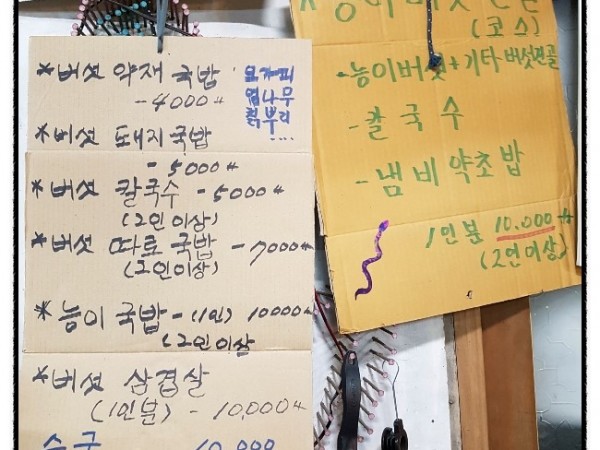 *버섯 약재 국밥
-4000₩
오가피
엄나무
칡뿌리
....
*버섯 돼지국밥
-5000₩
*버섯 칼국수 -5000₩
(2인이상)
*버섯 따로국밥 -7000₩
(2인이상)
*능이 국밥-(1인) 10000₩
(2인이상
*버섯 삼겹살
(1인분) - 10,000₩
수육
*능이버섯전골
(코스)
-능이버섯+기타버섯전골
-칼국수
-냄비약초밥
1인분 10.000₩
(2인이상)